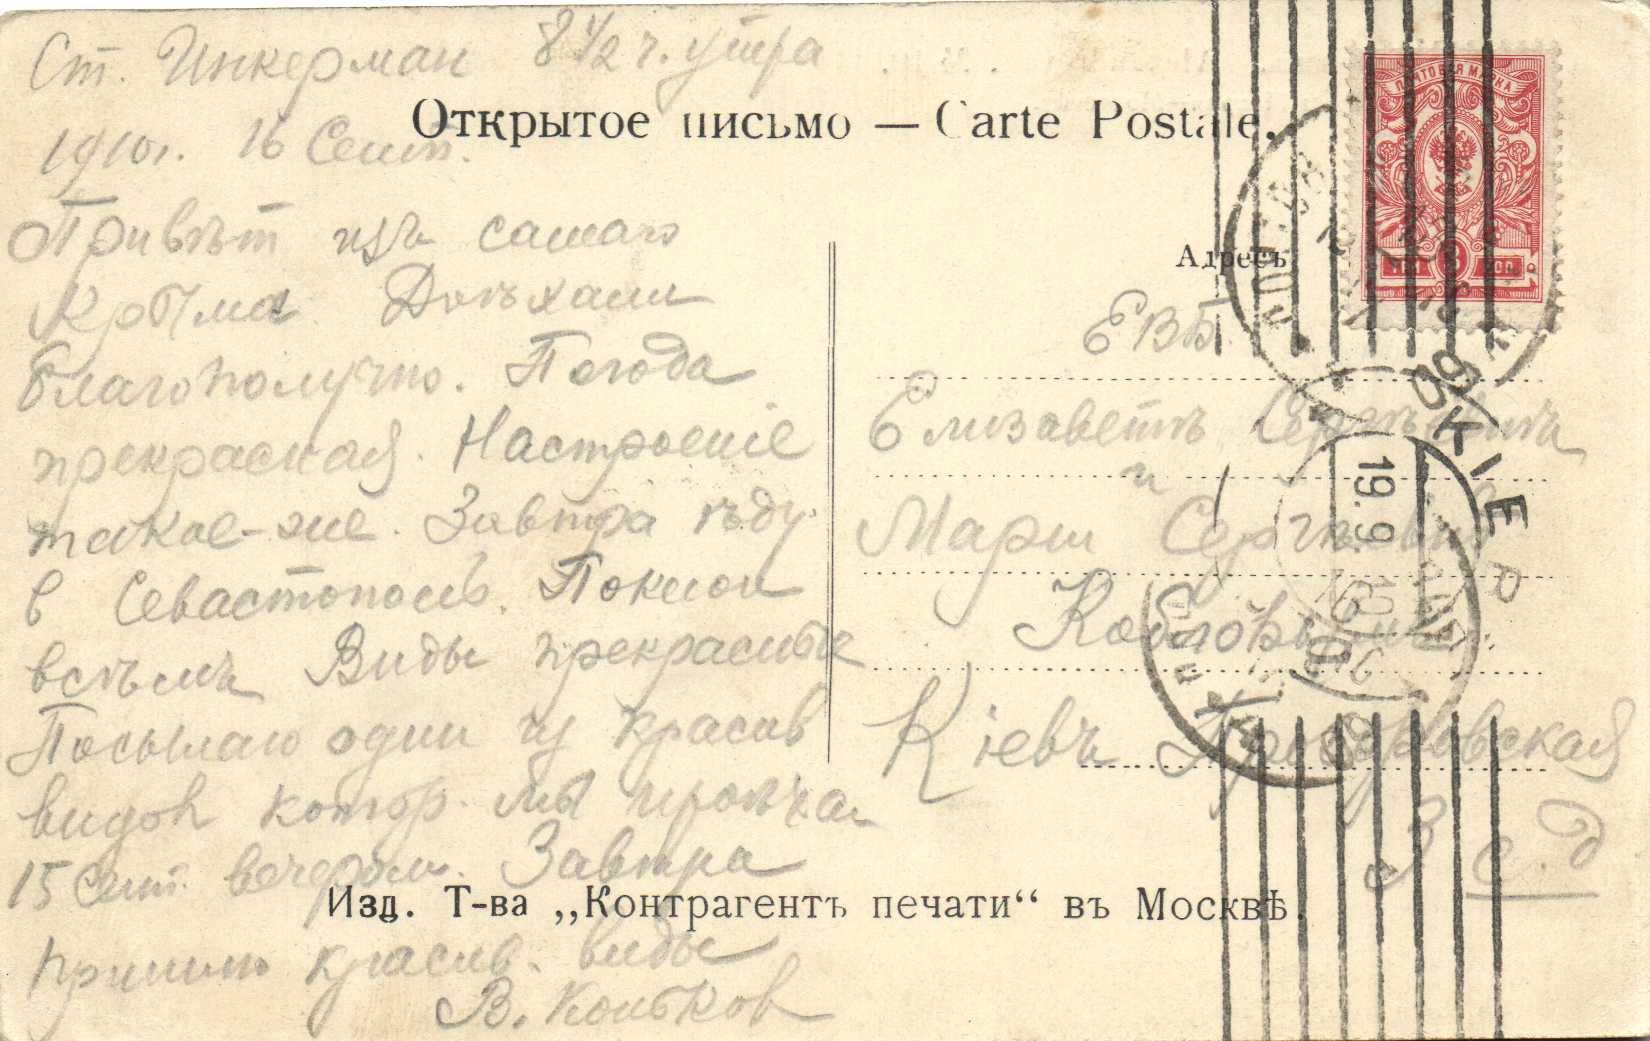 Ст. Инкерман 8 1/2 ч. утра
1910 г. 16 Сент.
Открытое письмо — Carte Postale.
Привѣт изъ самаго
Крыма Доѣхали
благополучно. Погода
прекрасная. Настроеніе
такое-же. Завтра ѣду
в Севастополь. Поклон
всѣмъ Виды прекрасные
Посылаю один из красив
видов котор. мы проѣха
15 Сент. вечером. Завтра
пришлю красив. виды
В. Коньков
ПОЧТОВАЯ МАРКА
3
Адресъ
ЕВБ
Елизаветѣ Сергѣевнѣ
и
Маріи Сергѣевнѣ
Кіевъ
3
с. д
KIEP
19.9.10
Изд. Т-ва „Контрагентъ печати“ въ Москвѣ.